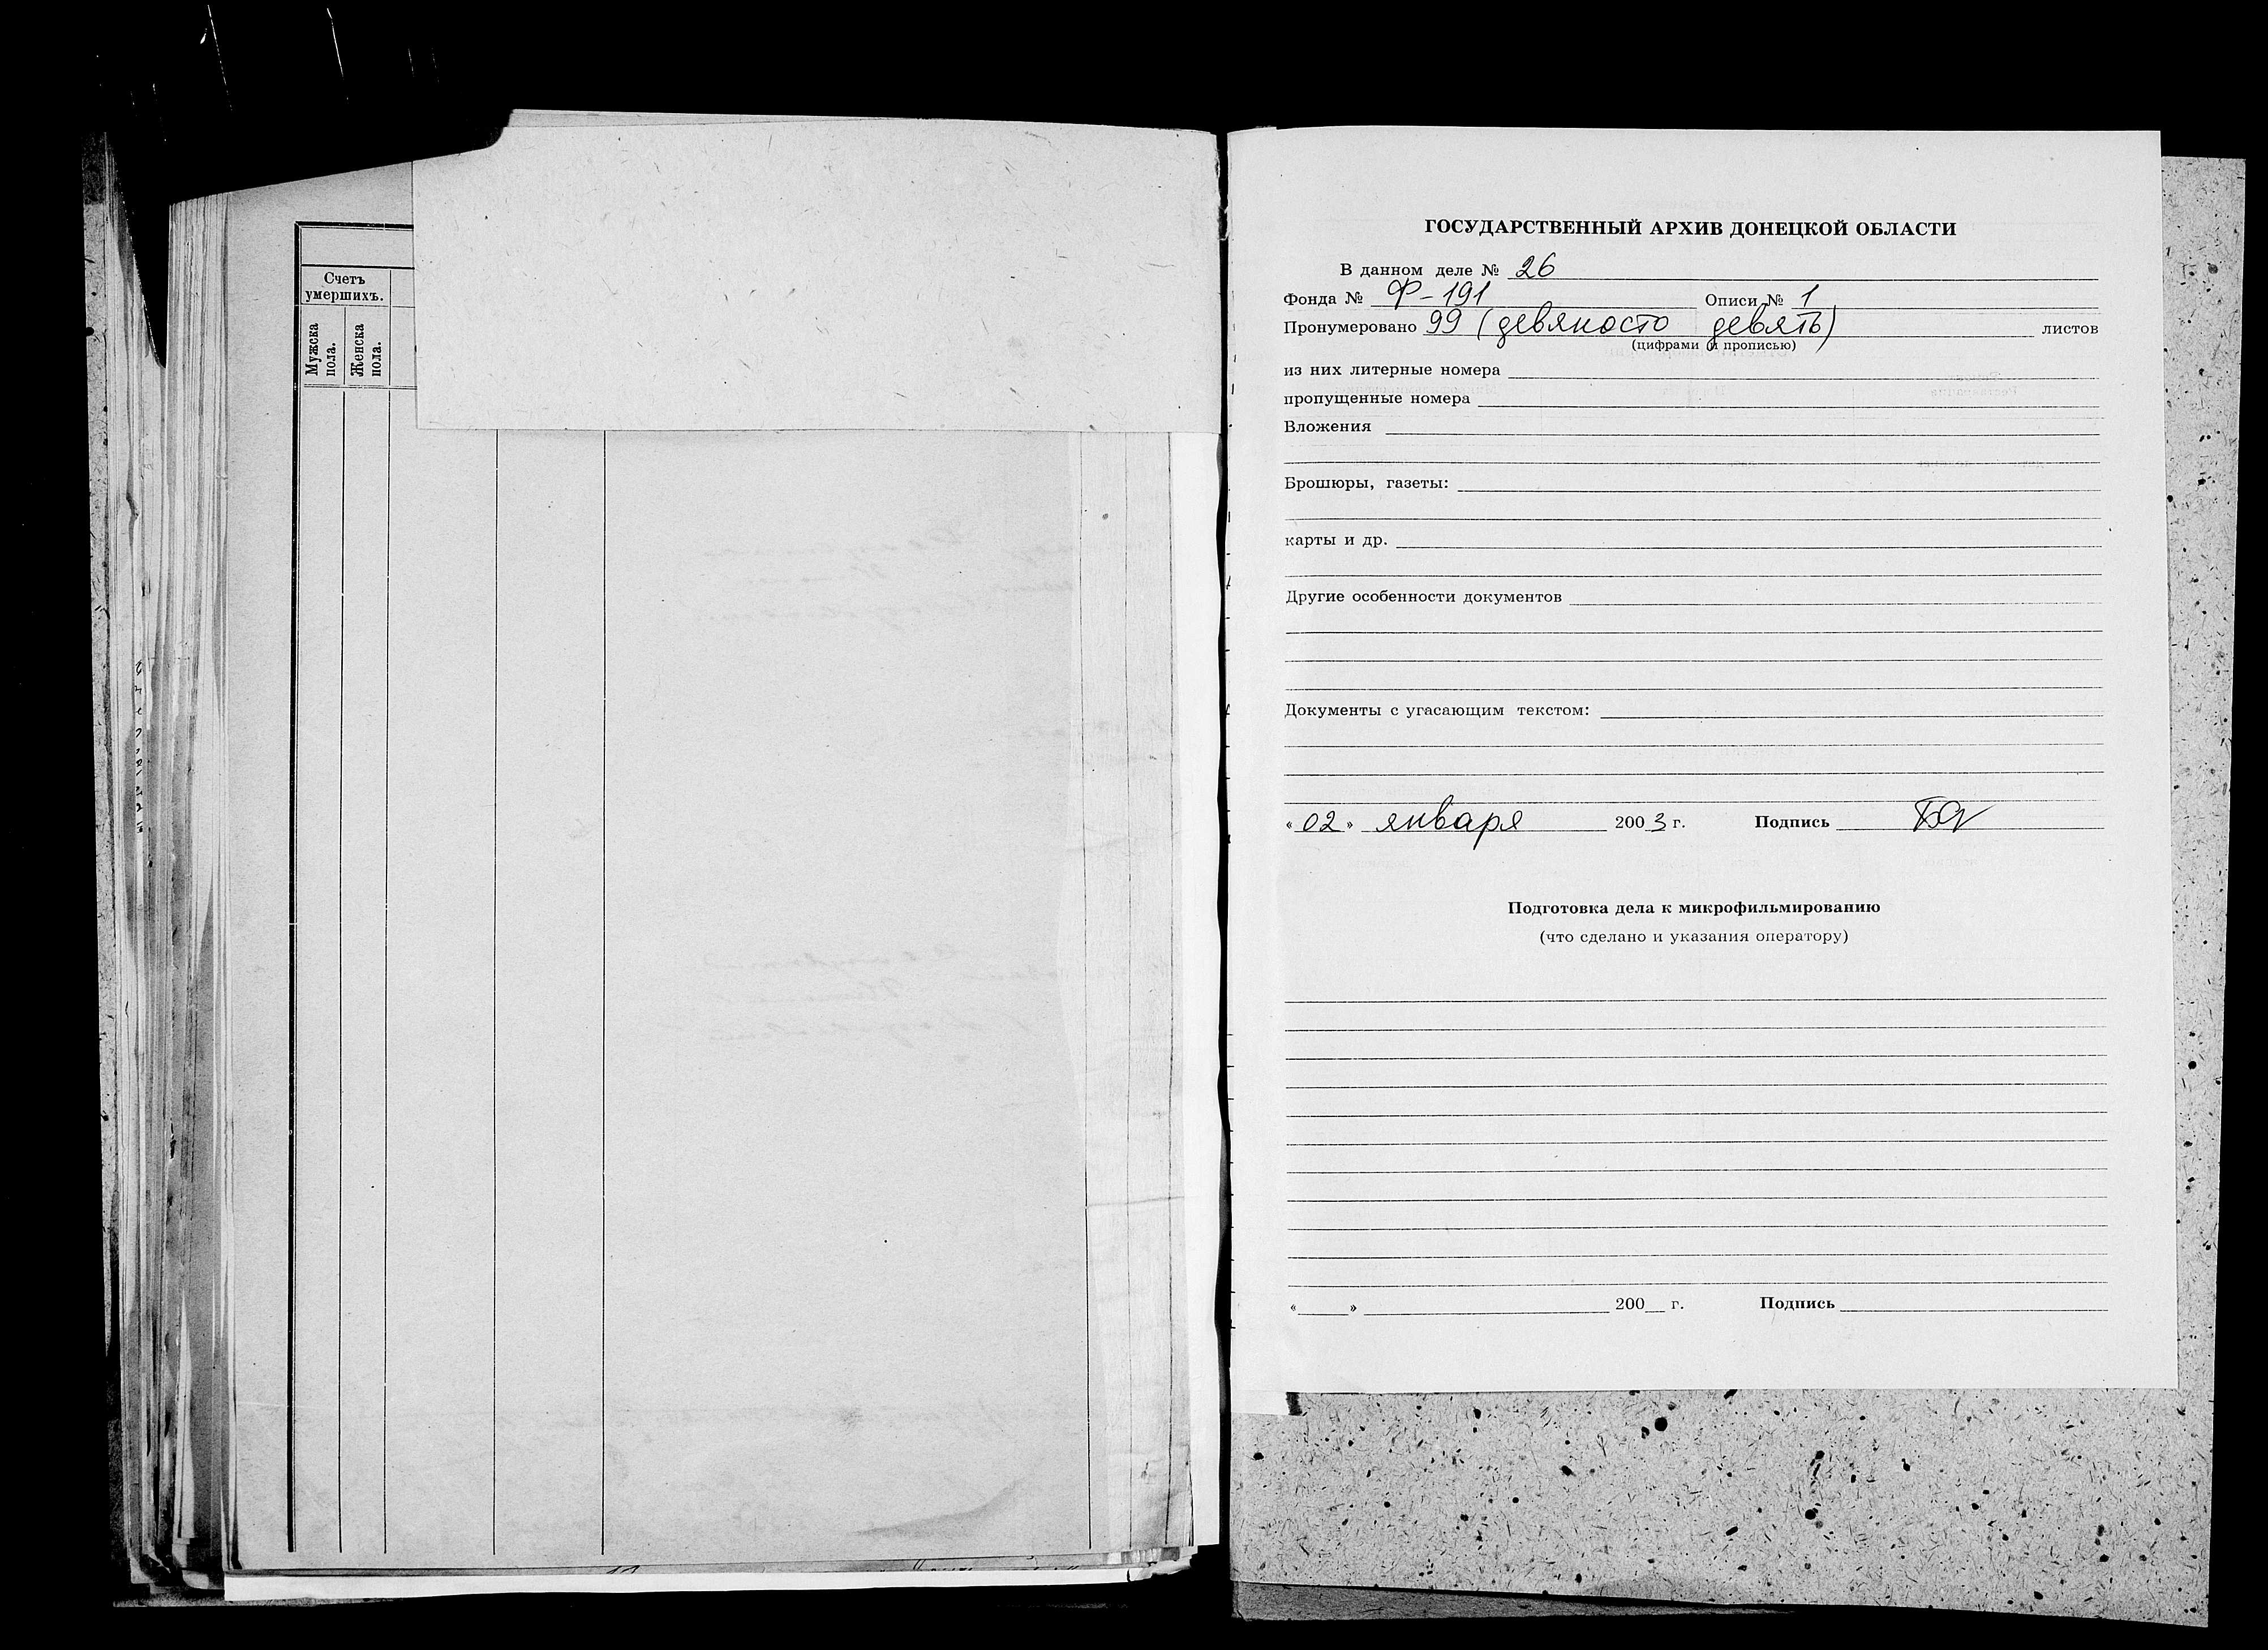 Счетъ
умершихъ.
Мужска
пола.
Женска
пола.
ГОСУДАРСТВЕННЫЙ АРХИВ ДОНЕЦКОЙ ОБЛАСТИ
В данном деле № 26
Фонда № Ф-191 Описи № 1
Пронумеровано 99 (девяносто девять) листов
(цифрами и прописью)
из них литерные номера
пропущенные номера
Вложения
Брошюры, газеты:
карты и др.
Другие особенности документов
Документы с угасающим текстом:
«02» января 2003 г. Подпись
Подготовка дела к микрофильмированию
(что сделано и указания оператору)
« » 200 г. Подпись